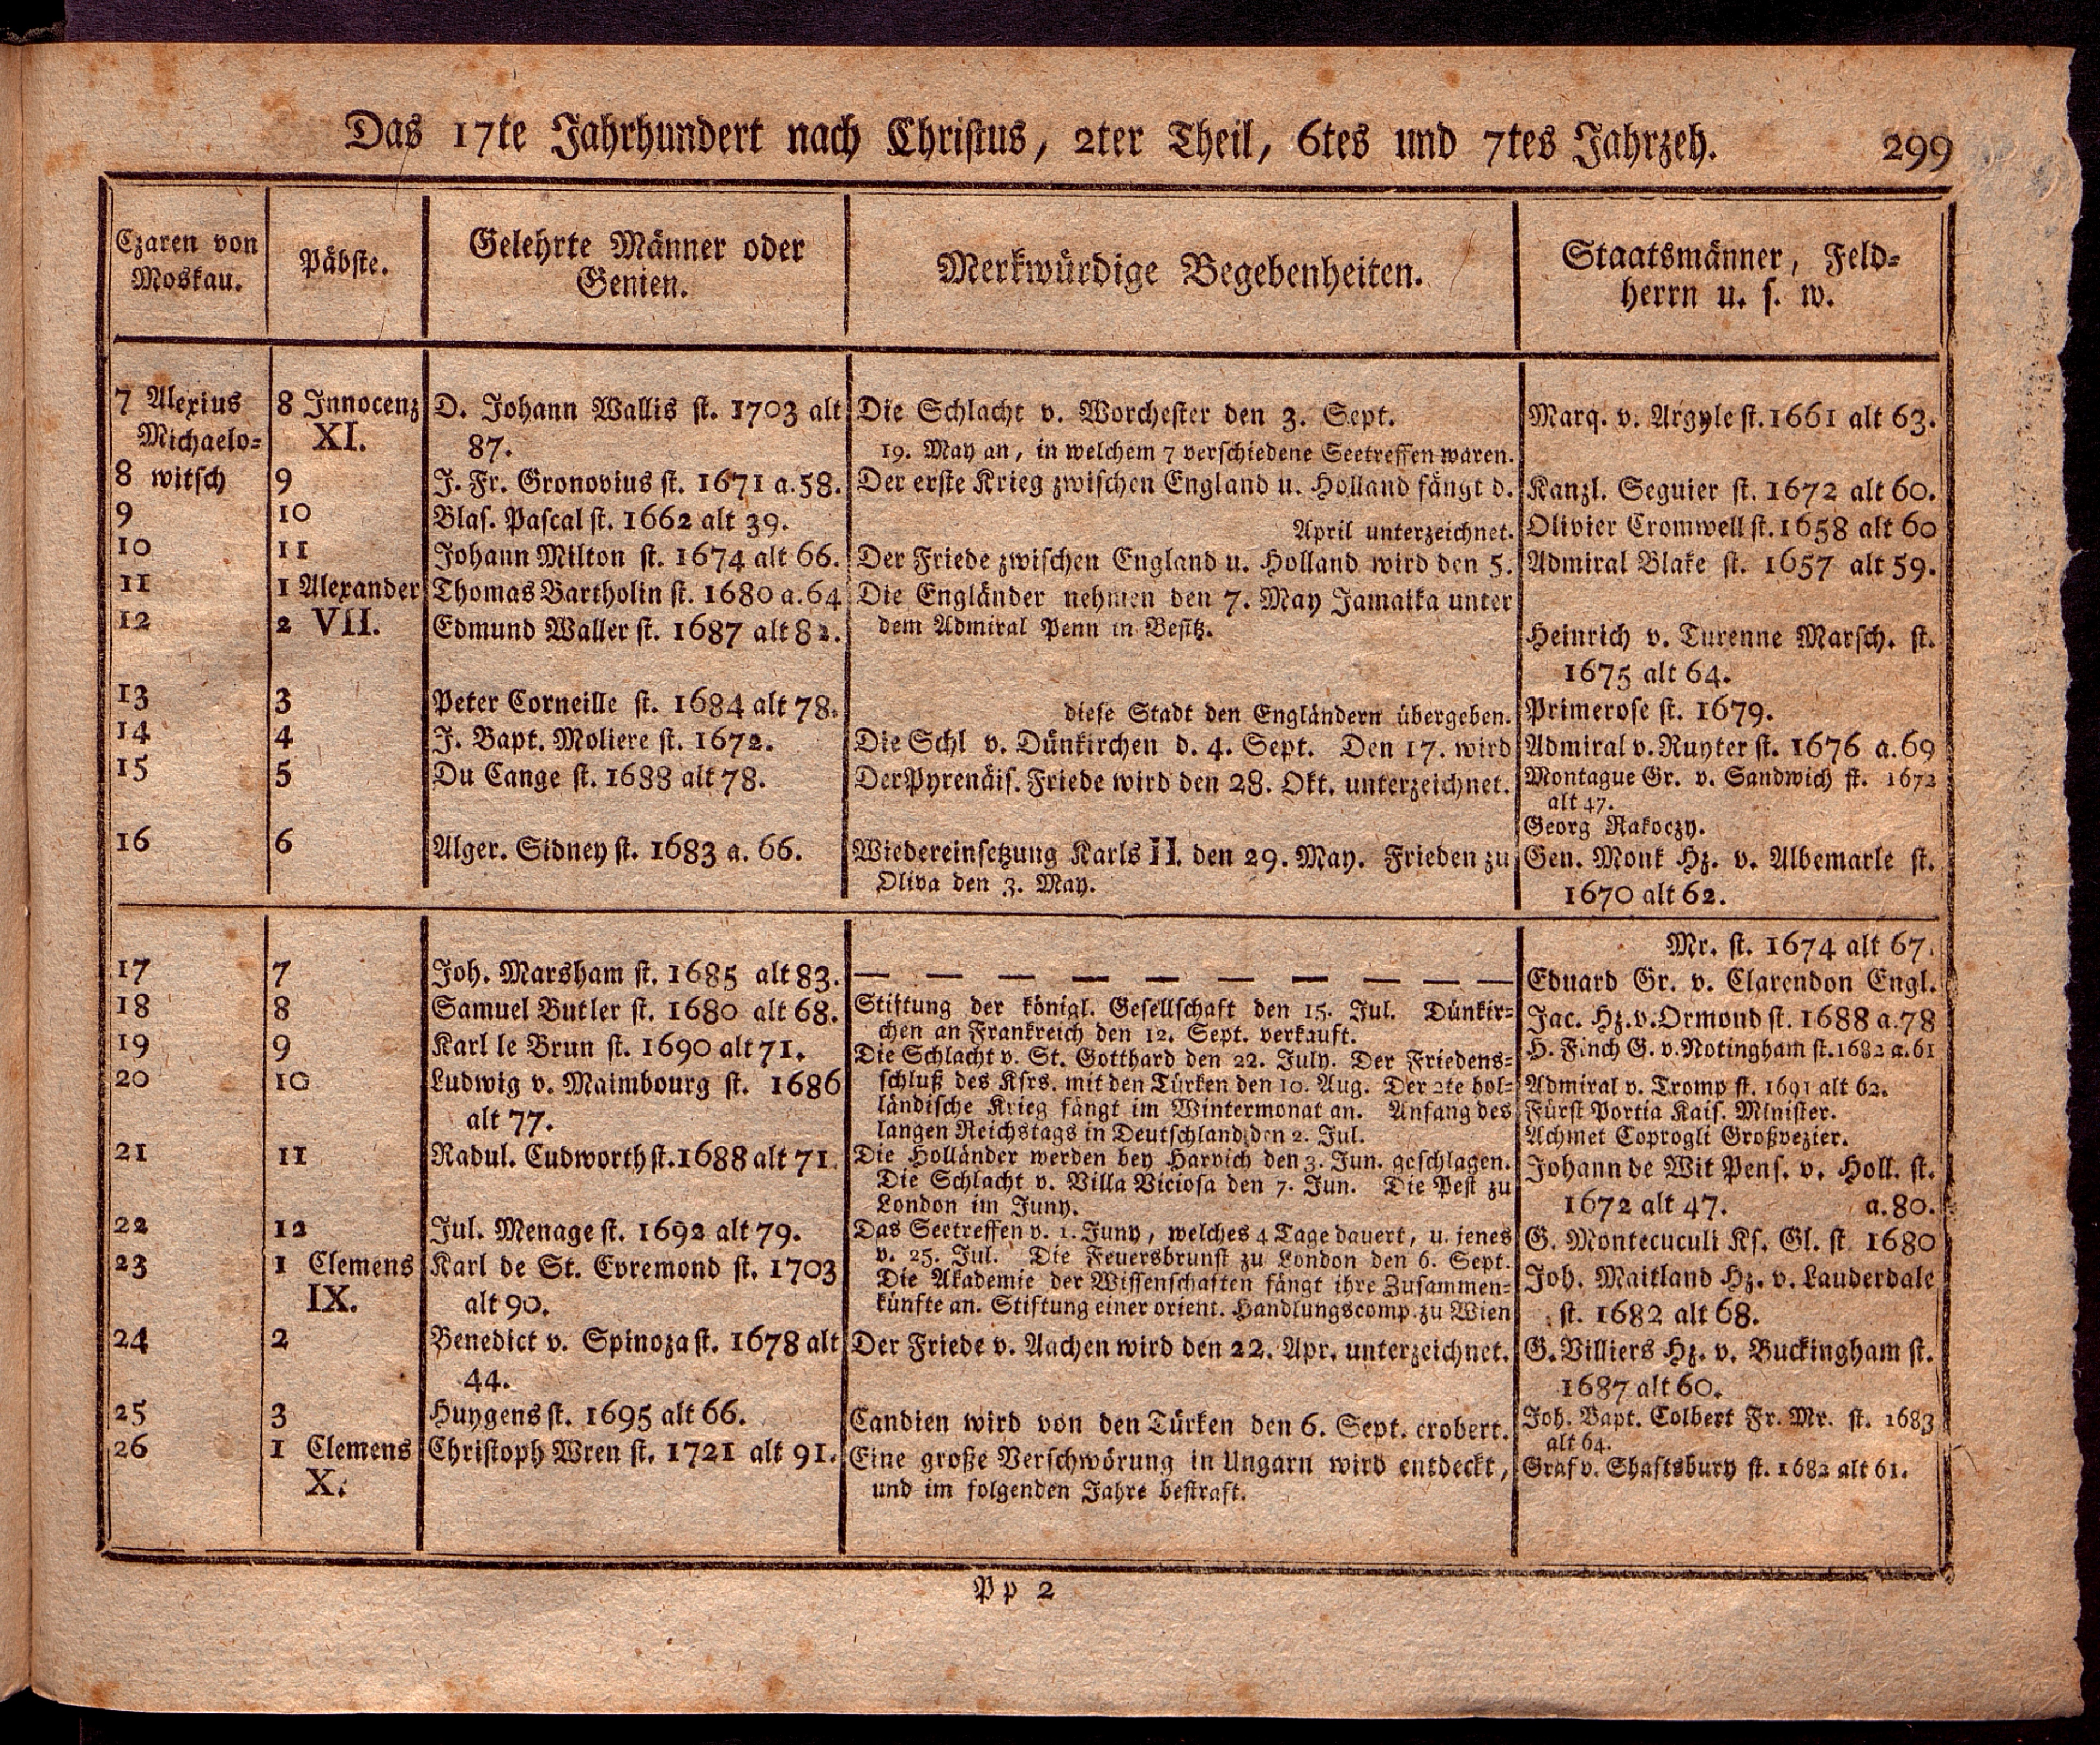 Das 17te Jahrhundert nach Christus, 2ter Theil, 6tes und 7tes Jahrzeh. 299
Czaren von
Moskau.
Päbste.
Gelehrte Männer oder
Genien.
Merkwürdige Begebenheiten.
Staatsmänner, Feld-
herrn u. s. w.
7 Alexius
Michaelo-
8 witsch
9
10
11
12
13
14
15
16
8 Innocenz
XI.
9
10
11
1 Alexander
2 VII.
3
4
5
6
D. Johann Wallis st. 1703 alt
87.
J. Fr. Gronovius st. 1671 a. 58.
Blas. Pascal st. 1662 alt 39.
Johann Milton st. 1674 alt 66.
Thomas Bartholin st. 1680 a. 64
Edmund Waller st. 1687 alt 82.
Peter Corneille st. 1684 alt 78.
J. Bapt. Moliere st. 1672.
Du Cange st. 1688 alt 78.
Alger. Sidney st. 1683 a. 66.
Die Schlacht v. Worchester den 3. Sept.
19. May an, in welchem 7 verschiedene Seetreffen waren.
Der erste Krieg zwischen England u. Holland fängt d.
April unterzeichnet.
Der Friede zwischen England u. Holland wird den 5.
Die Engländer nehmen den 7. May Jamaika unter
dem Admiral Penn in Besitz.
diese Stadt den Engländern übergeben.
Die Schl v. Dünkirchen d. 4. Sept. Den 17. wird
Der Pyrenäis. Friede wird den 28. Okt. unterzeichnet.
Wiedereinsetzung Karls II. den 29. May. Frieden zu
Oliva den 3. May.
Marq. v. Argyle st. 1661 alt 63.
Kanzl. Seguier st. 1672 alt 60.
Olivier Cromwell st. 1658 alt 60
Admiral Blake st. 1657 alt 59.
Heinrich v. Turenne Marsch. st.
1675 alt 64.
Primerose st. 1679.
Admiral v. Ruyter st. 1676 a. 69
Montague Gr. v. Sandwich st. 1672
alt 47.
Georg Rakoczy.
Gen. Monk Hz. v. Albemarle st.
1670 alt 62.
17
18
19
20
21
22
23
24
25
26
7
8
9
10
11
12
1 Clemens
IX.
2
3
1 Clemens
X.
Joh. Marsham st. 1685 alt 83.
Samuel Butler st. 1680 alt 68.
Karl le Brun st. 1690 alt 71.
Ludwig v. Maimbourg st. 1686
alt 77.
Radul. Cudworth st. 1688 alt 71.
Jul. Menage st. 1692 alt 79.
Karl de St. Evremond st. 1703
alt 90.
Benedict v. Spinoza st. 1678 alt
44.
Huygens st. 1695 alt 66.
Christoph Wren st. 1721 alt 91.
— — — — — — — — — —
Stiftung der königl. Gesellschaft den 15. Jul. Dünkir-
chen an Frankreich den 12. Sept. verkauft.
Die Schlacht v. St. Gotthard den 22. July. Der Friedens-
schluß des Ksrs. mit den Türken den 10. Aug. Der 2te hol-
ländische Krieg fängt im Wintermonat an. Anfang des
langen Reichstags in Deutschland den 2. Jul.
Die Holländer werden bey Harvich den 3. Jun. geschlagen.
Die Schlacht v. Villa Viciosa den 7. Jun. Die Pest zu
London im Juny.
Das Seetreffen v. 1. Juny, welches 4 Tage dauert, u. jenes
v. 25. Jul. Die Feuersbrunst zu London den 6. Sept.
Die Akademie der Wissenschaften fängt ihre Zusammen-
künfte an. Stiftung einer orient. Handlungscomp. zu Wien
Der Friede v. Aachen wird den 22. Apr. unterzeichnet.
Candien wird von den Türken den 6. Sept. erobert.
Eine große Verschwörung in Ungarn wird entdeckt,
und im folgenden Jahre bestraft.
Mr. st. 1674 alt 67.
Eduard Gr. v. Clarendon Engl.
Jac. Hz. v. Ormond st. 1688 a. 78
H. Finch G. v. Notingham st. 1682 a. 61
Admiral v. Tromp st. 1691 alt 62.
Fürst Portia Kais. Minister.
Achmet Coprogli Großvezier.
Johann de Wit Pens. v. Holl. st.
1672 alt 47. a. 80.
G. Montecuculi Ks. Gl. st. 1680
Joh. Maitland Hz. v. Lauderdale
st. 1682 alt 68.
G. Villiers Hz. v. Buckingham st.
1687 alt 60.
Joh. Bapt. Colbert Fr. Mr. st. 1683
alt 64.
Graf v. Shaftsbury st. 1682 alt 61.
Pp 2